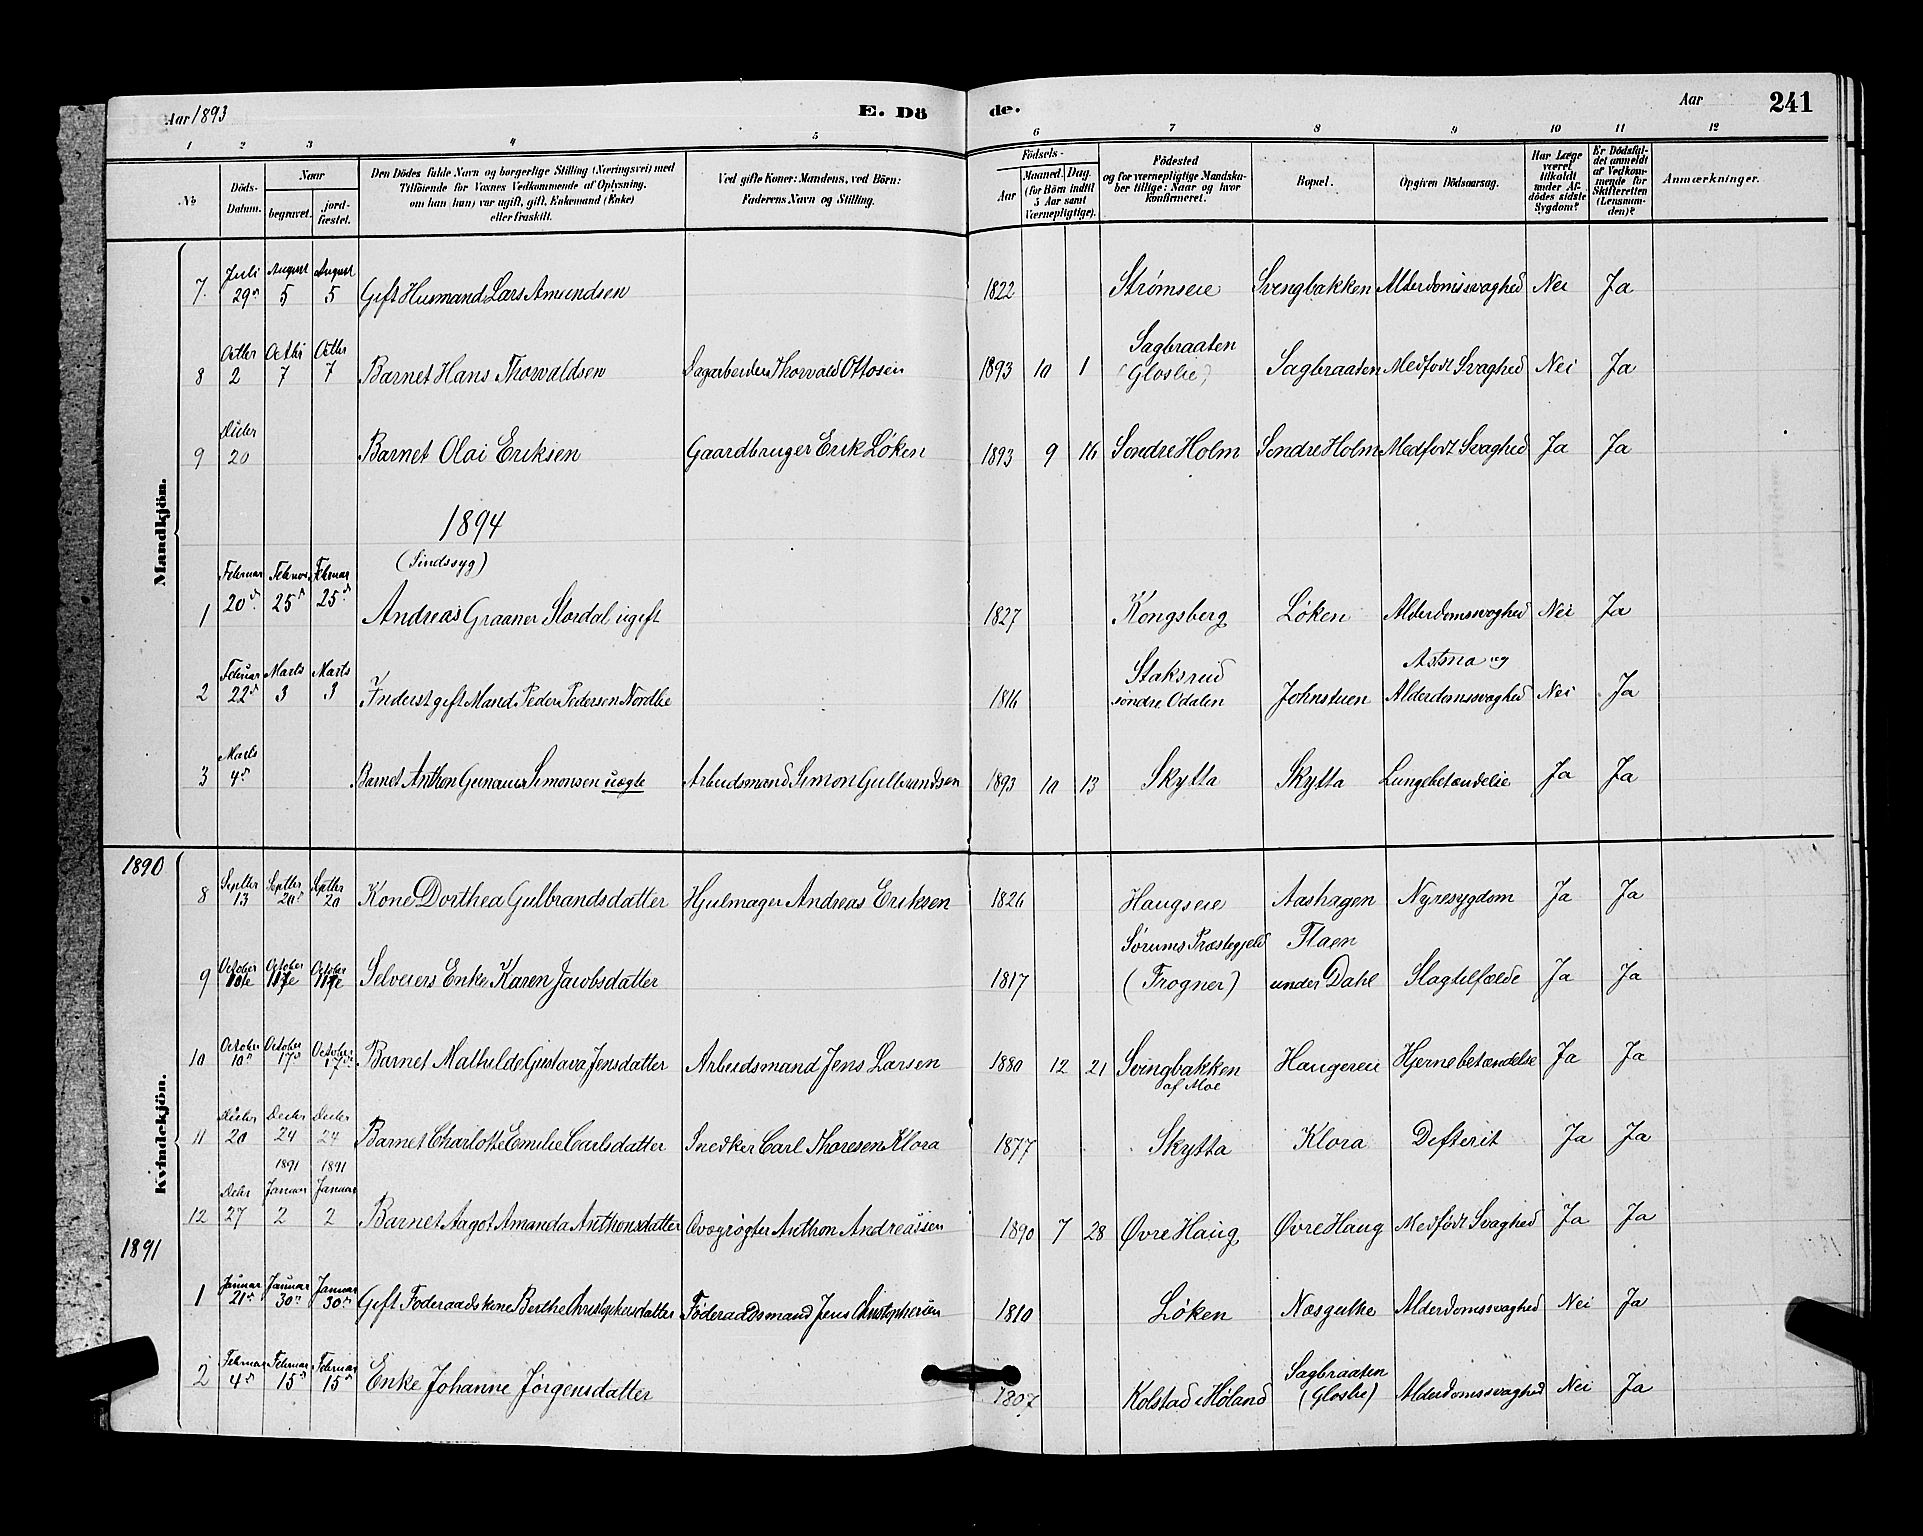 Aar 1893 E. Dö de. Aar 241
1 2 3 4 5 6 7 8 9 10 11 12
No
Döds-Datum.
Naar
begravet. jord-fæstet.
Den Dödes fulde Navn og borgerlige Stilling (Næringsvei) med
Tilföiende for Voxnes Vedkommende af Oplysning,
om han (hun) var ugift, gift, Enkemand (Enke)
eller fraskilt.
Ved gifte Koner: Mandens, ved Börn:
Faderens Navn og Stilling.
Födsels-
Aar Maaned. Dag.
(for Börn indtil
5 Aar samt
Værnepligtige).
Födested
og for værnepligtige Mandska-
ber tillige: Naar og hvor
konfirmeret.
Bopæl.
Opgiven Dödsaarsag.
Har Læge
været
tilkaldt
under Af-
dödes sidste
Sygdom?
Er Dödsfal-
det anmeldt
af Vedkom-
mende for
Skifteretten
(Lensman-
den)?
Anmærkninger.
Mandkjön.
7. Juli 29de August 5 August 5 Gift Husmand Lars Amundsen 1822 Strømseie Svengbakken Alderdomssvaghed Nei Ja
8 Octbr 2 Octbr 7 Octbr 7 Barnet Hans Thorvaldsen Dagarbeider Thorvald Ottosen 1893 10 1 Sagbraaten (Gloslie) Sagbraaten Medfødt Svaghed Nei Ja
9 Decbr 20 Barnet Olai Eriksen Gaardbruger Erik Løken 1893 9 16 Søndre Holm Søndre Holm Medfødt Svaghed Ja Ja
1894
(Sindssyg)
1 Februar 20de Februar 25de Februar 25de Andreas Graaner Stordal ugift 1827 Kongsberg Løken Alderdomssvaghed Nei Ja
2 Februar 22de Marts 3 Marts 3 Inderst gift Mand Peder Pedersen Nordlie 1816 Staksrud søndre Odalen Johnstuen Astma og Alderdomssvaghed Nei Ja
3 Marts 4de Barnet Anthon Gunanus Simonsen uægte Arbeidsmand Simon Gulbrandsen 1893 10 13 Skytta Skytta Lungebetændelse Ja Ja
1890
Kvindekjön.
8 Septbr 13 Septbr 20de Septbr 20 Kone Dorthea Gulbrandsdatter Hjulmager Andreas Eriksen 1826 Haugseie Aashagen Nyresygdom Ja Ja
9 October October October Selveiers Enke Karen Jacobsdatter 1817 Sørums Præstegjeld (Frogner) Flaen under Dahl Slagtilfælde Ja Ja
10 October 10de October 17de October 17de Barnet Mathilde Gustava Jensdatter Arbeidsmand Jens Larsen 1880 12 21 Svingbakken af Moe Haugereie Hjernebetændelse Ja Ja
11 Decbr 20 Decbr 24 Decbr 24 Barnet Charlotte Emilie Carlsdatter Snedker Carl Thoresen Klora 1877 Skytta Klora Defterit Ja Ja
12 Decbr 27 1891 Januar 2 1891 Januar 2 Barnet Aagot Amanda Anthonsdatter Qvægrøgter Anthon Andreassen 1890 7 28 Øvre Haug Øvre Haug Medfødt Svaghed Ja Ja
1891
1 Januar 21de Januar 30de Januar 30de Gift Føderaadskone Berthe Christophersdatter Føderaadsmand Jens Christophersen 1810 Løken Næsgutke Alderdomssvaghed Nei Ja
2 Februar 4de Februar 15de Februar 15de Enke Johanne Jørgensdatter 1807 Kolstad i Høland Sagbraaten (Gloslie) Alderdomssvaghed Nei Ja